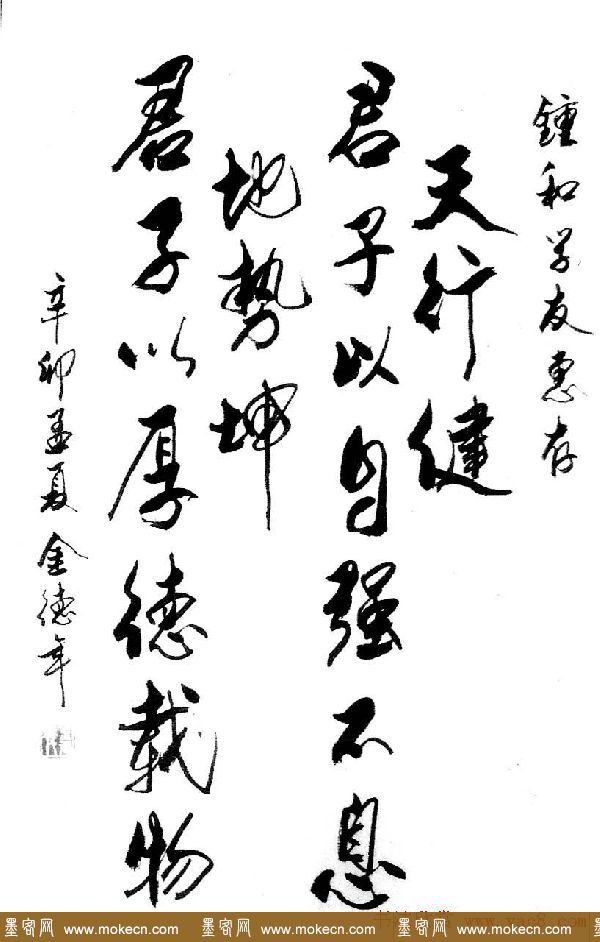 鍾和学友惠存
天行健
君子以自强不息
地势坤
君子以厚德载物
辛卯孟夏金德年
www.yac8.com
墨客网 www.mokecn.com 墨客网 www.mokecn.com 墨客网 www.mokecn.com